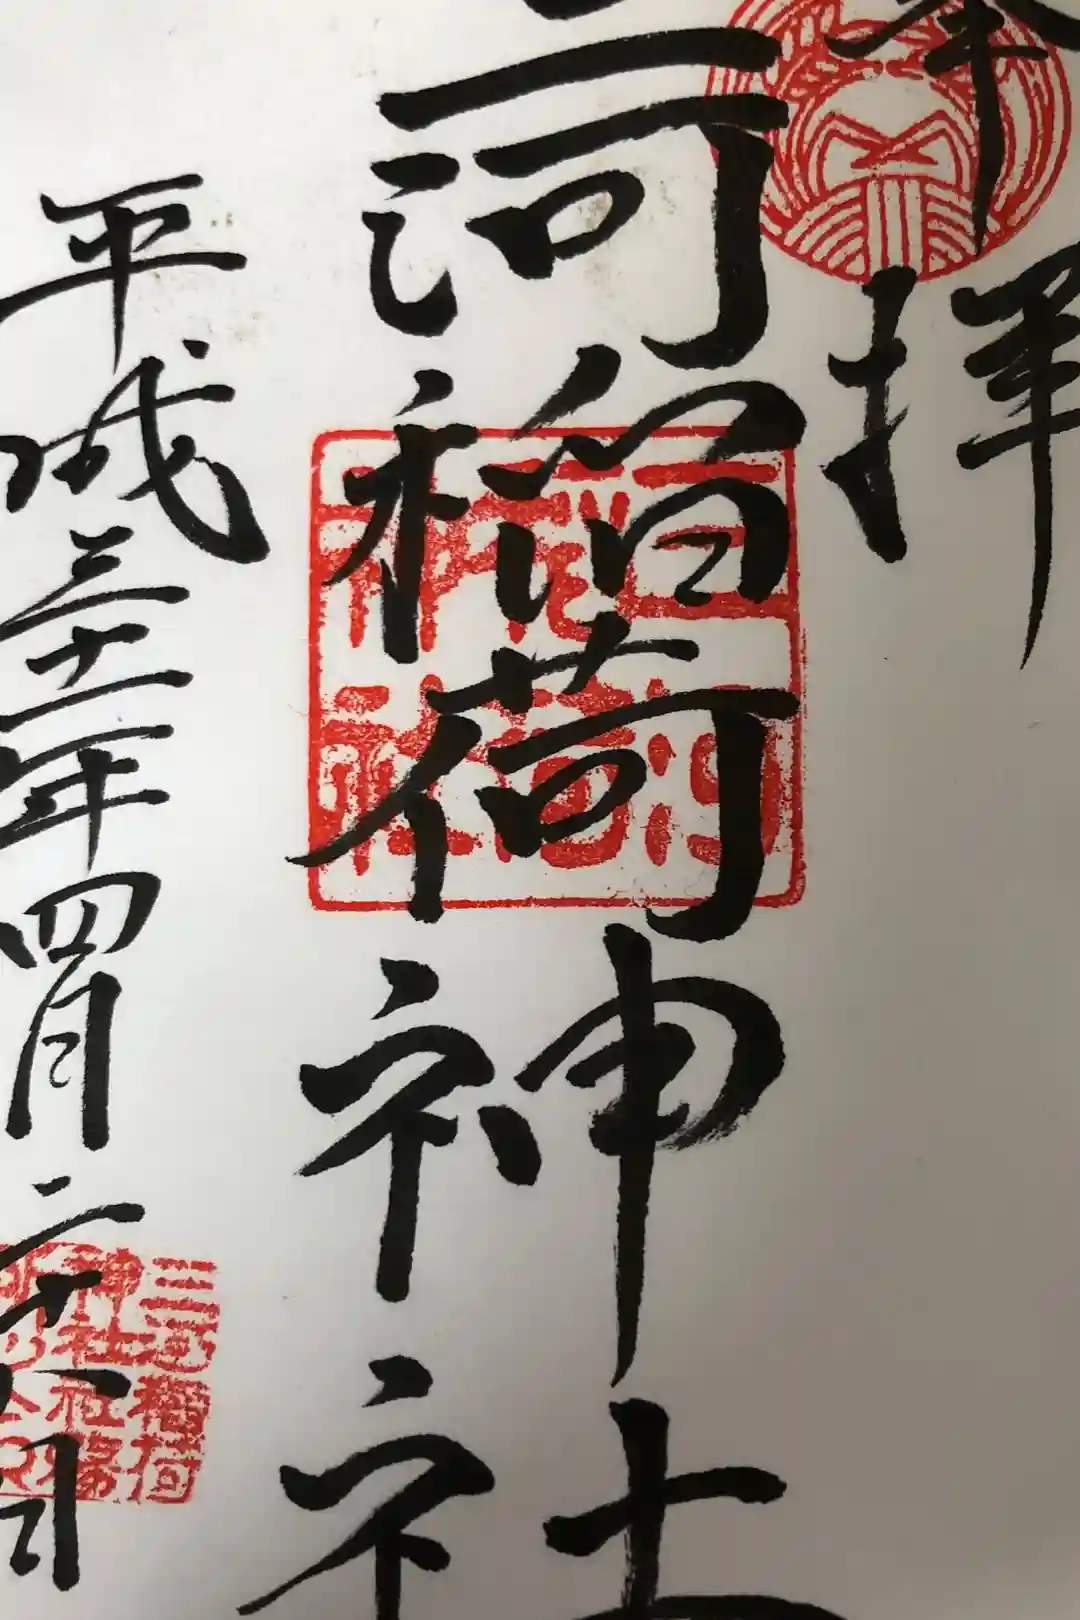 奉拝
三河稲荷神社
三河
稲荷
神社
平成三十一年四月二十八日
三河稲荷
神社社務